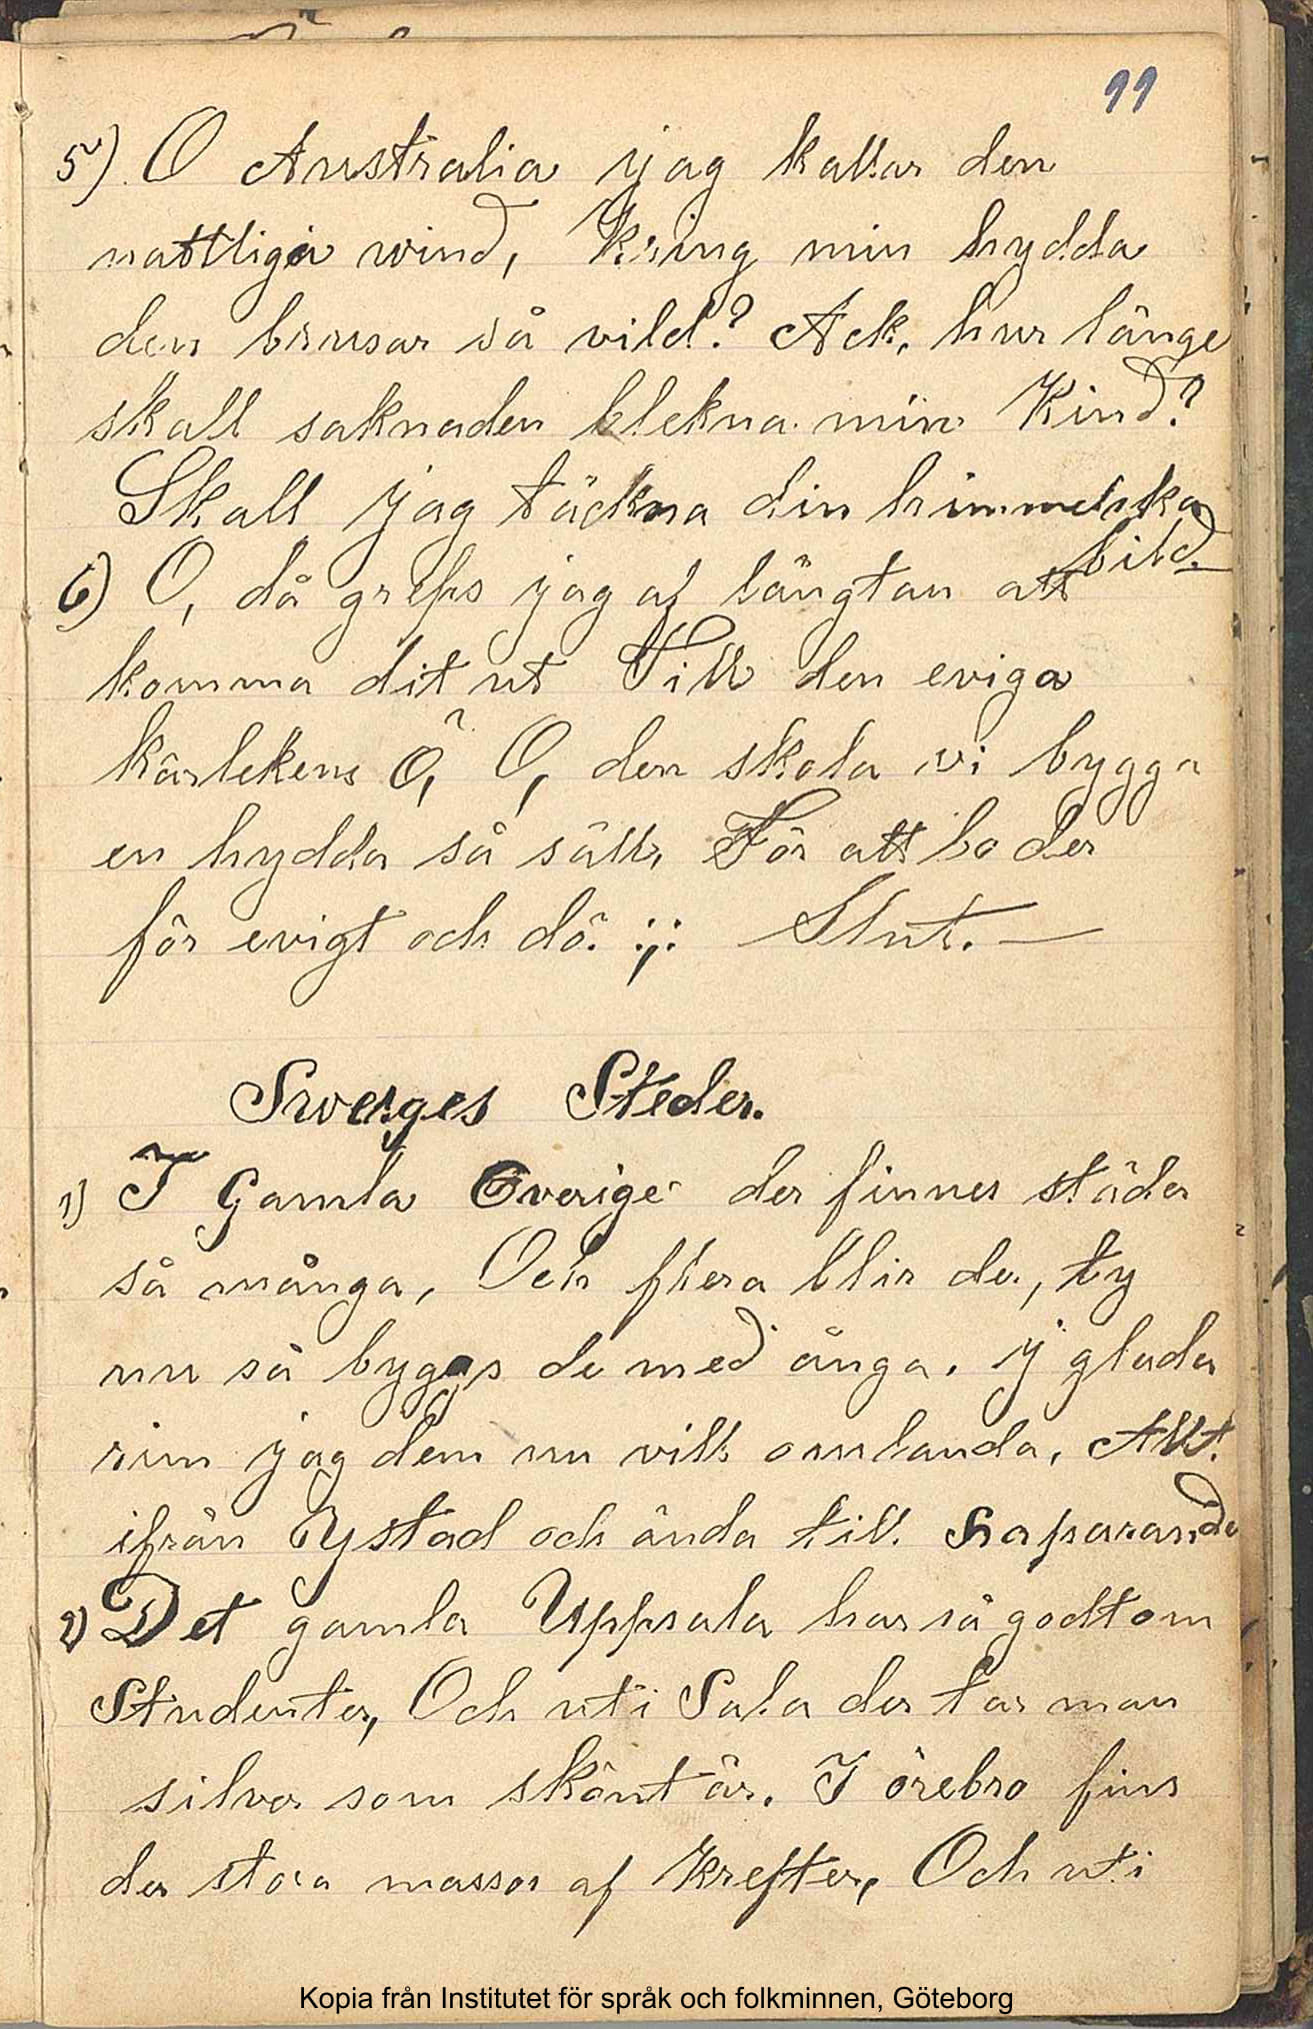 99
5) O Australia jag kallar den
nattliga wind, Kring min hydda
den brusar så vild? Ack, hur länge
skall saknaden blekna min Kind?
Skall jag täckna din himmelska
bild_
6) O, då greps jag af längtan att
komma dit ut Till den eviga
kärlekens Ö, O, den skola vi bygga
en hydda så säll, För att bo der
för evigt och dö. ;: Slut. —
Swerges Steder.
1) I Gamla Sverige der finnes städer
så många, Och flera blir de, ty
nu så byggs de med ånga. I glada
rim jag dem nu vill omlanda, Allt.
ifrån Ystad och ända till Haparanda
2) Det gamla Uppsala har så godt om
Studenter, Och uti Sala der tar man
silver som skönt är. I örebro fins
der stora massor af Krefter, Och uti
Kopia från Institutet för språk och folkminnen, Göteborg